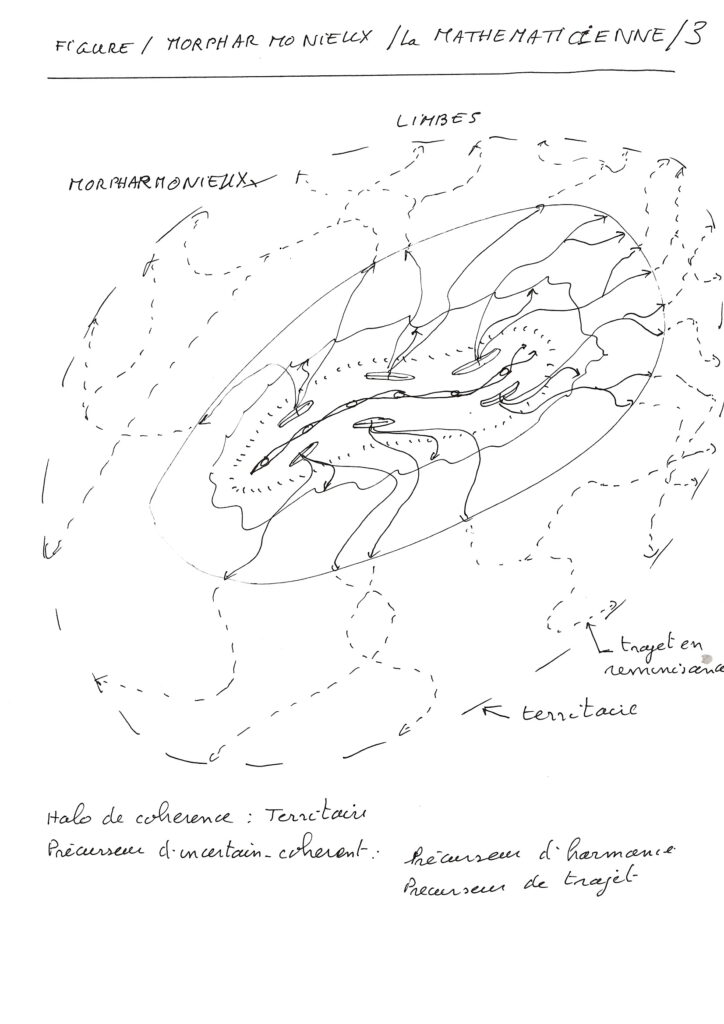 FIGURE / MORPHARMONIEUX / la MATHEMATICIENNE / 3
LIMBES
MORPHARMONIEUX
trajet en
reminiscence
territoire
Halo de coherence : Territoire
Précurseur d'incertain-coherent :
Précurseur d'harmonie
Precurseur de trajet